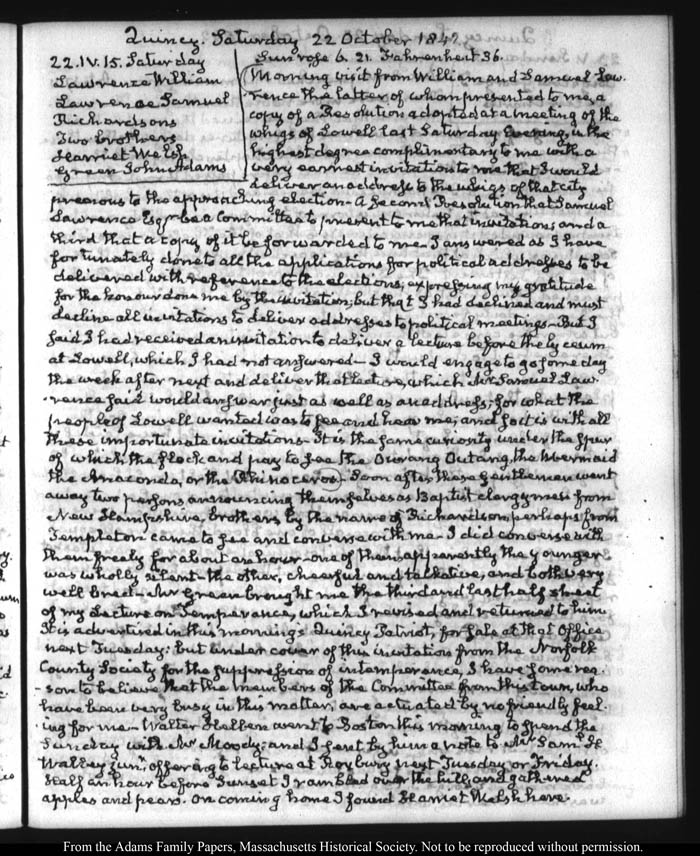 Quincy. Saturday 22 October 1842.
22. IV. 15. Saturday
Lawrence William
Lawrence Samuel
Richardsons
Two brothers
Harriet Welsh
Green John Adams
Sun rose 6. 21. Fahrenheit 36.
Morning visit from William and Samuel Law-
rence the latter of whom presented to me, a
copy of a Resolution adopted at a meeting of the
whigs of Lowell last Saturday Evening, in the
highest degree complimentary to me with a
very earnest invitation to me that I would
deliver an address to the whigs of that city
previous to the approaching election - A second Resolution that Samuel
Lawrence Esqr be a Committee to present to me that invitation, and a
third that a copy of it be forwarded to me - I answered as I have
fortunately done to all the applications for political addresses to be
delivered with reference to the elections, expressing my gratitude
for the honour done me by the invitation, but that I had declined and must
decline all invitations to deliver addresses to political meetings - But I
said I had received an invitation to deliver a lecture before the Lyceum
at Lowell, which I had not answered - I would engage to go some day
the week after next and deliver that lecture, which Mr Samuel Law-
rence said would answer just as well as an address; for what the
people of Lowell wanted was to see and hear me; and so it is with all
these importunate invitations - It is the same curiosity under the spur
of which the flock and pay to see the Ourang Outang, the Mermaid
the Anaconda, or the Rhinoceros - Soon after these Gentlemen went
away two persons announcing themselves as Baptist clergymen from
New Hampshire, brothers by the name of Richardson, perhaps from
Templeton came to see and converse with me - I did converse with
them freely for about an hour - one of them apparently the younger
was wholly silent - the other, cheerful and talkative, and both very
well bred - Mr Green brought me the third and last half sheet
of my Lecture on Temperance, which I revised and returned to him
It is advertised in this morning's Quincy Patriot, for sale at that Office
next Tuesday: but under cover of this invitation from the Norfolk
County Society for the suppression of intemperance, I have some rea-
-son to believe that the members of the Committee from this town, who
have been very busy in this matter, are actuated by no friendly feel-
ing for me - Walter Hellen went to Boston this morning to spend the
Sunday with Mr Moody; and I sent by him a note to Mr Saml H
Walley junr. offering to lecture at Roxbury next Tuesday or Friday.
Half an hour before Sunset I rambled over the hill, and gathered
apples and pears. On coming home I found Harriet Welsh here.
From the Adams Family Papers, Massachusetts Historical Society. Not to be reproduced without permission.